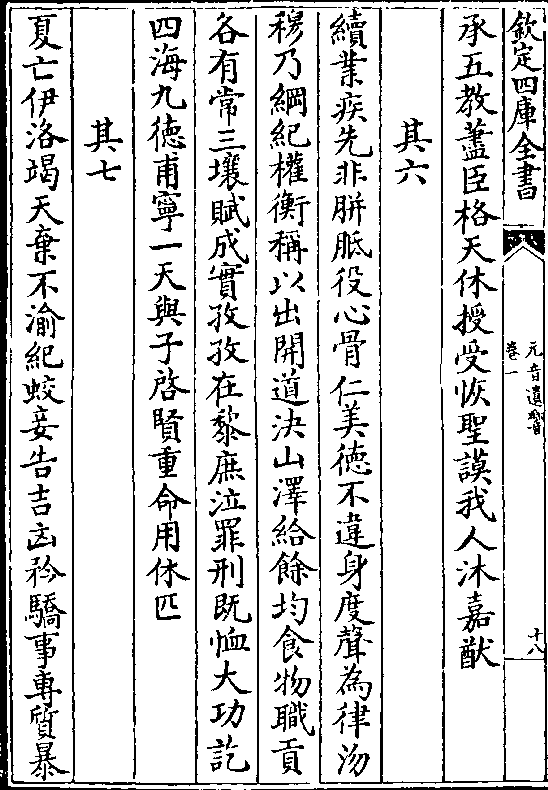 欽定四庫全書
元音遺響
卷一
十八
承五教藎臣格天休授受恢聖謨我人沐嘉猷
其六
續業疾先非胼胝役心骨仁美德不違身度聲為律沕
穆乃綱紀權衡稱以出開道決山澤給餘均食物職貢
各有常三壤賦成實孜孜在黎庶泣罪刑既恤大功訖
四海九德甫寧一天與子啓賢重命用休匹
其七
夏亡伊洛竭天棄不渝紀蛟妾告吉凶矜驕事專質暴